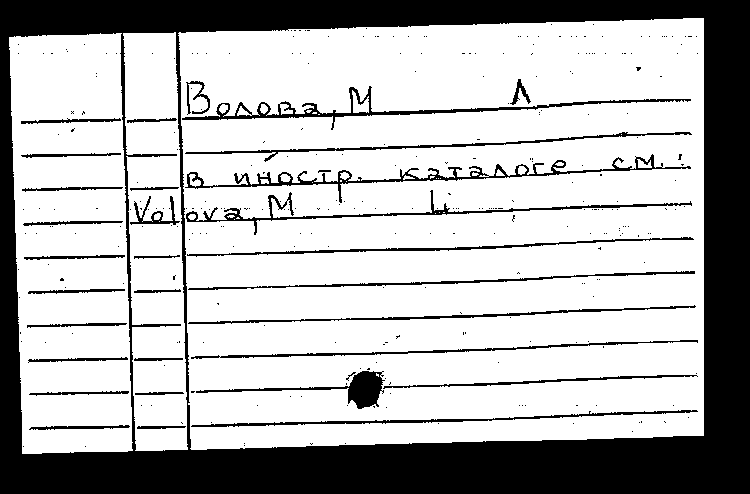 Волова, М Л
в иностр. каталоге см.:
Volova, M Li